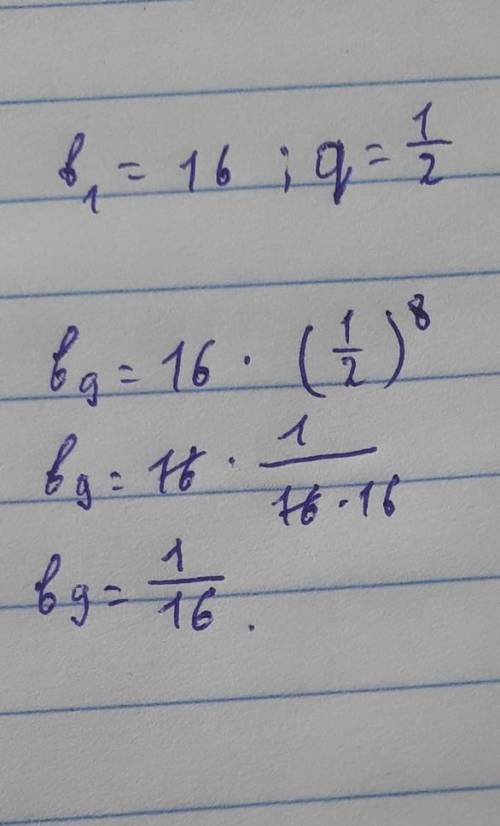 в₁ = 16 ; q = 1/2
в₉ = 16 · (1/2)⁸
в₉ = 16 · 1/(16 · 16)
в₉ = 1/16.